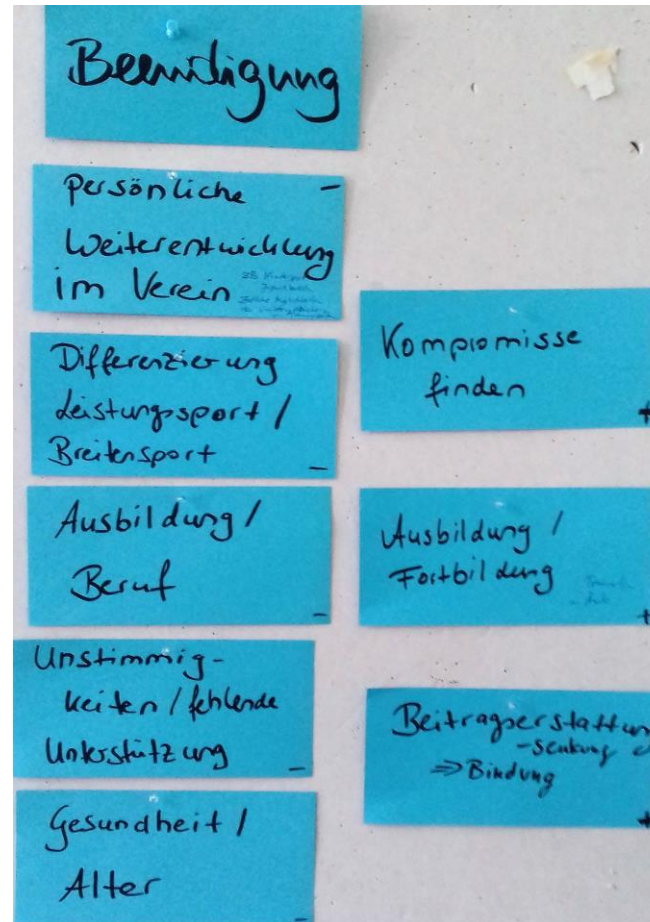 Beendigung
persönliche -
Weiterentwicklung
im Verein
Differenzierung
Leistungssport /
Breitensport -
Ausbildung /
Beruf -
Unstimmig-
keiten / fehlende
Unterstützung -
Gesundheit /
Alter -
Kompromisse
finden +
Ausbildung /
Fortbildung +
Beitragserstattun
-senkung
⇒ Bindung +